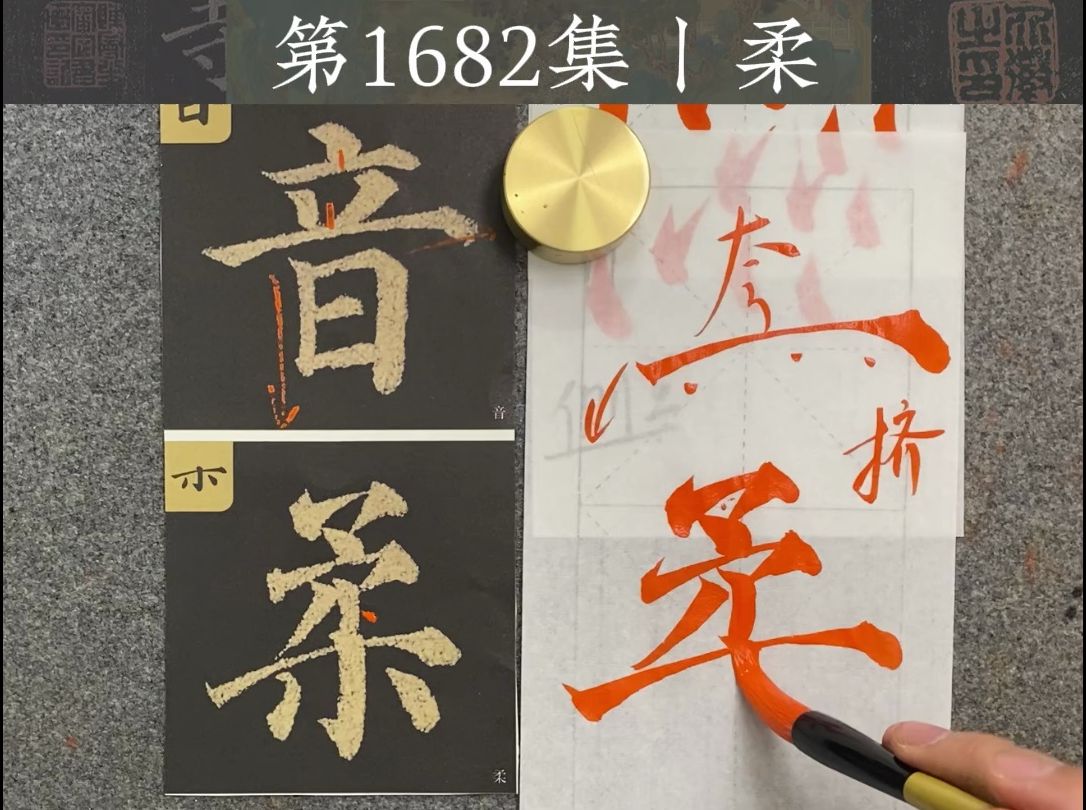 第1682集丨柔
音
音
柔
柔
夸
挤
柔